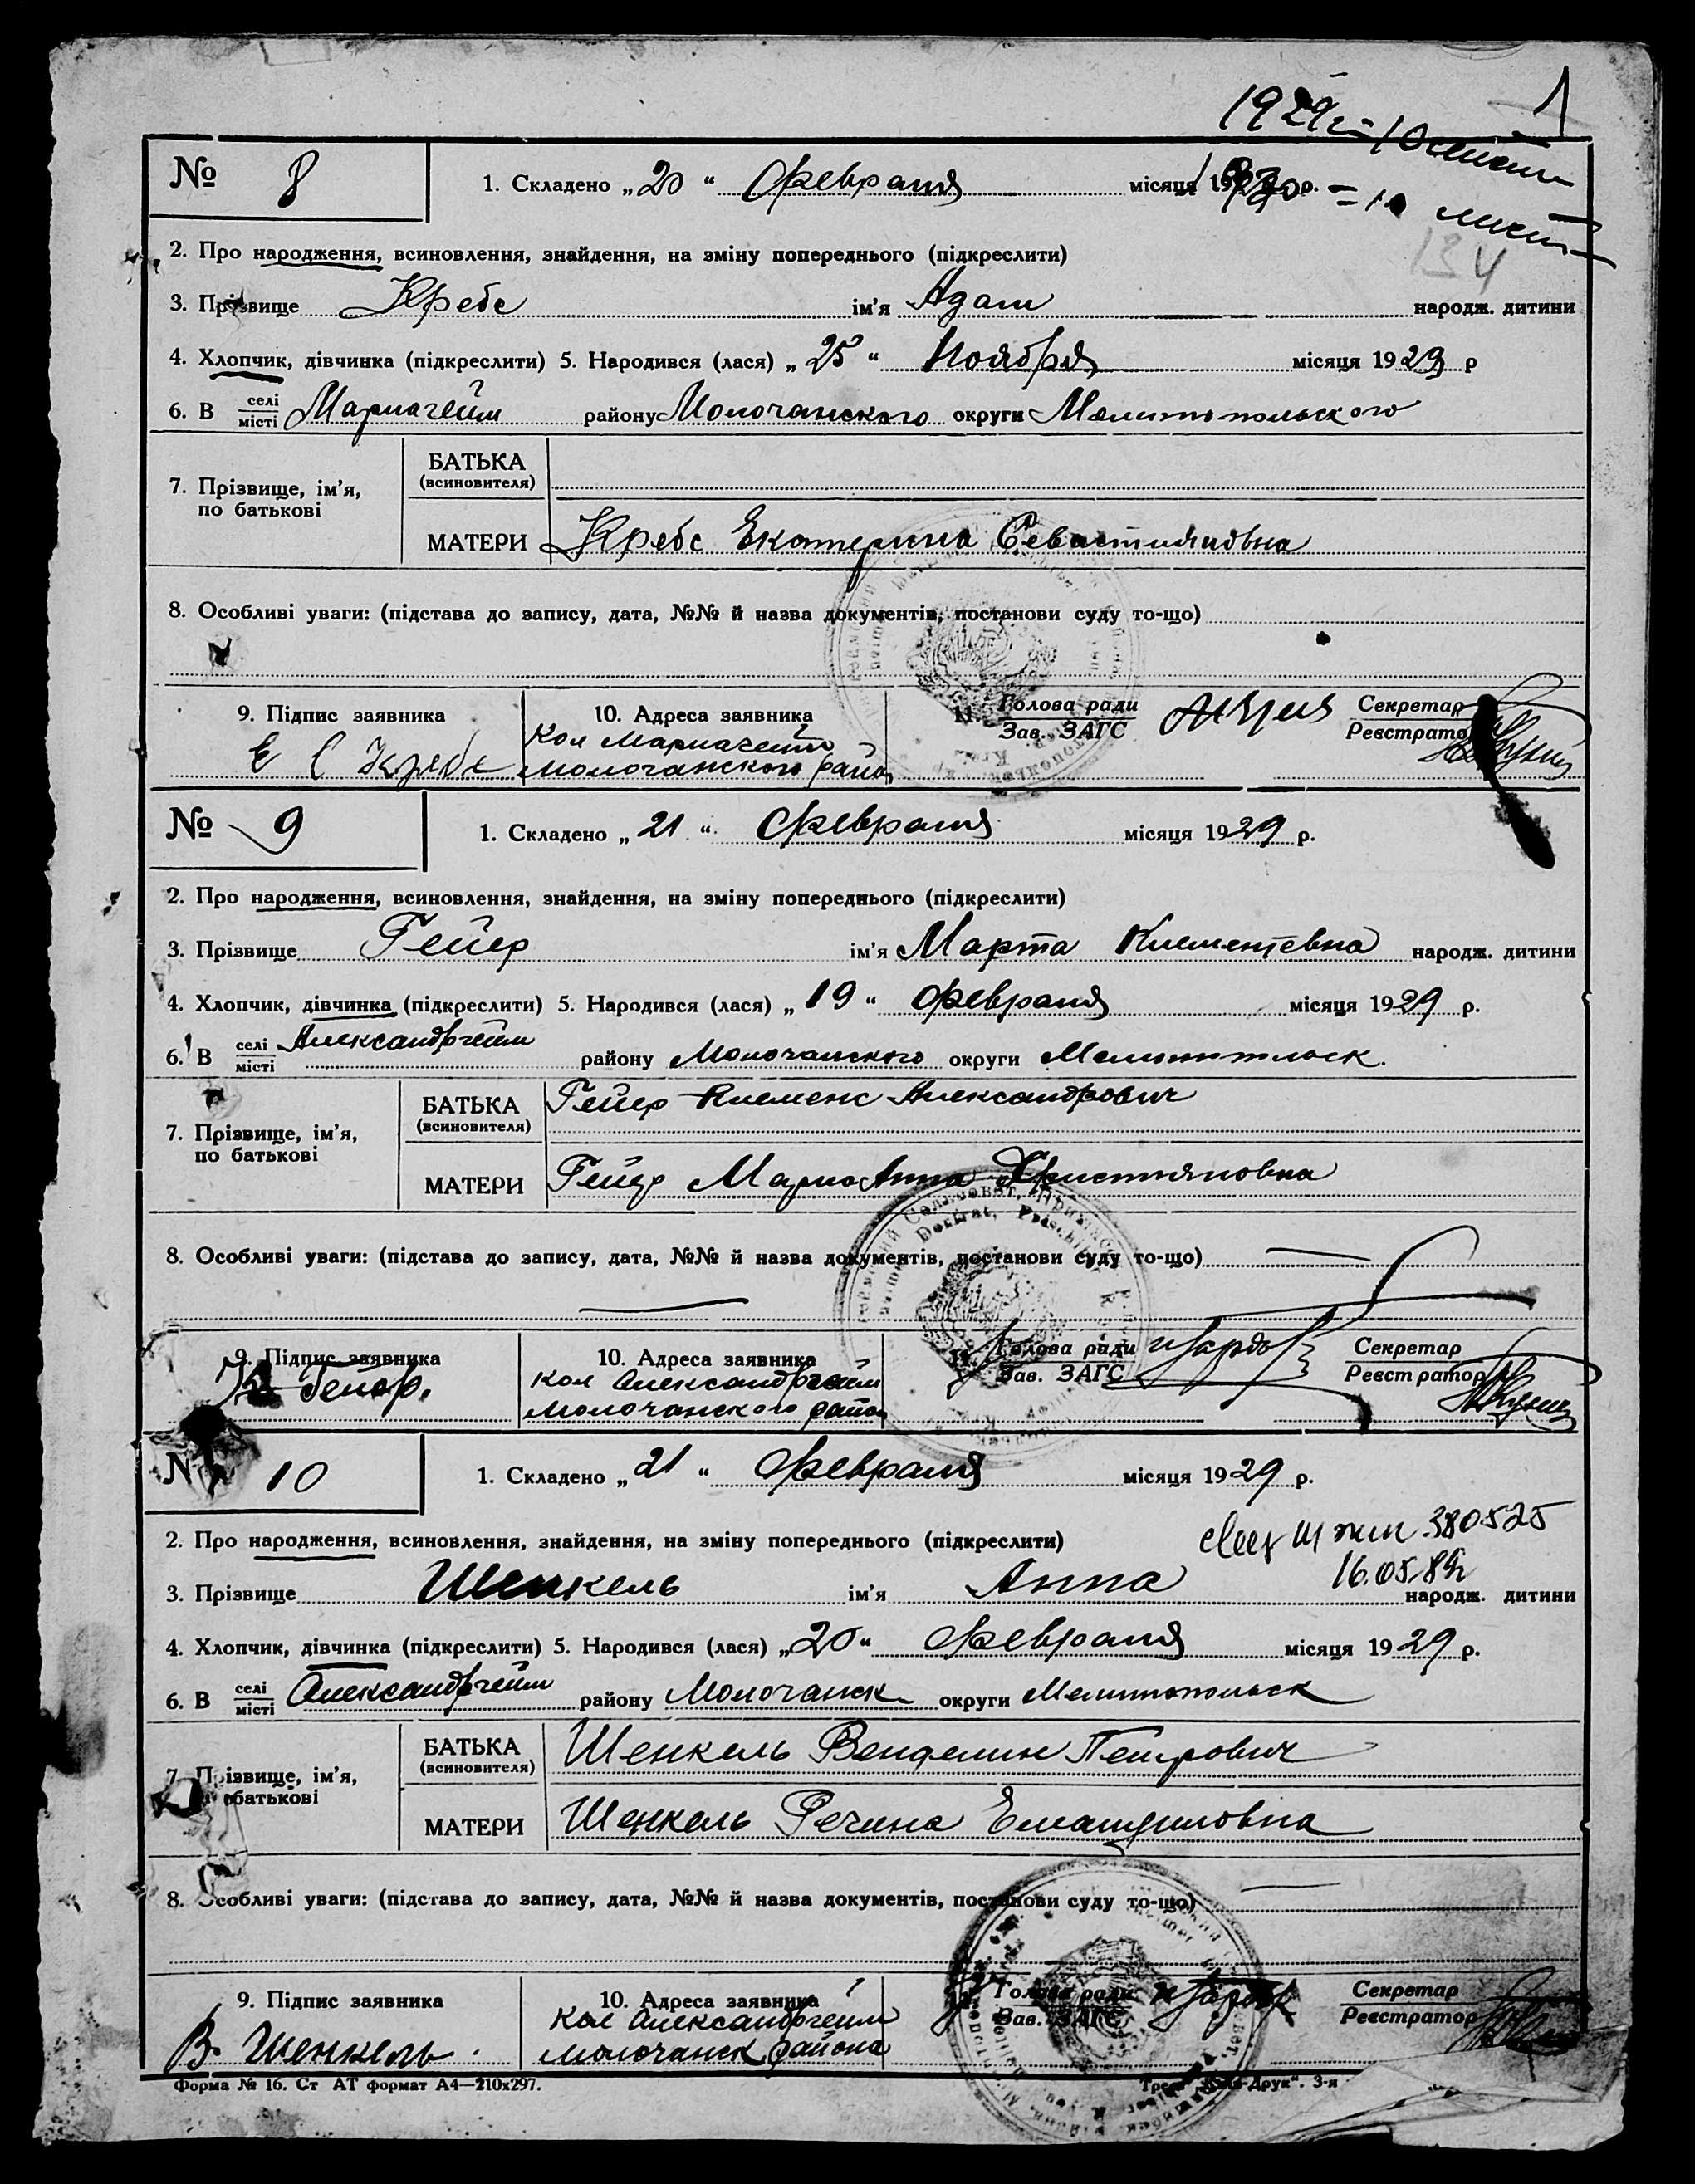 1
1929г = 10 лист
1930 = 10 лист
134
№ 8
1. Складено „20“ Февраля місяця 19 р.
2. Про народження, всиновлення, знайдення, на зміну попереднього (підкреслити)
3. Прізвище Кребс ім'я Адам народж. дитини
4. Хлопчик, дівчинка (підкреслити) 5. Народився (лася) „25“ Ноября місяця 1929 р
6. В селі/місті Мариагейм району Молочанского округи Мелитопольского
7. Прізвище, ім'я, по батькові
БАТЬКА (всиновителя)
МАТЕРИ Кребс Екатерина Севастияновна
8. Особливі уваги: (підстава до запису, дата, №№ й назва документів, постанови суду то-що)
9. Підпис заявника 10. Адреса заявника 11. Голова ради Секретар
Зав. ЗАГС Реєстратор
Е С Кребс Кол Мариагейм
Молочанского район
№ 9
1. Складено „21“ Февраля місяця 1929 р.
2. Про народження, всиновлення, знайдення, на зміну попереднього (підкреслити)
3. Прізвище Гейер ім'я Марта Клементевна народж. дитини
4. Хлопчик, дівчинка (підкреслити) 5. Народився (лася) „19“ Февраля місяця 1929 р.
6. В селі/місті Александргейм району Молочанского округи Мелитопольск.
7. Прізвище, ім'я, по батькові
БАТЬКА (всиновителя) Гейер Клеменс Александрович
МАТЕРИ Гейер МариоАнна Християновна
8. Особливі уваги: (підстава до запису, дата, №№ й назва документів, постанови суду то-що)
9. Підпис заявника 10. Адреса заявника 11. Голова ради Секретар
Зав. ЗАГС Реєстратор
Гейер. Кол Александргейм
Молочанского район
№ 10
1. Складено „21“ Февраля місяця 1929 р.
2. Про народження, всиновлення, знайдення, на зміну попереднього (підкреслити)
380525
16.05.89г
3. Прізвище Шенкель ім'я Анна народж. дитини
4. Хлопчик, дівчинка (підкреслити) 5. Народився (лася) „20“ Февраля місяця 1929 р.
6. В селі/місті Александргейм району Молочанск округи Мелитопольск
7. Прізвище, ім'я, по батькові
БАТЬКА (всиновителя) Шенкель Венделин Петрович
МАТЕРИ Шенкель Регина Емануиловна
8. Особливі уваги: (підстава до запису, дата, №№ й назва документів, постанови суду то-що)
9. Підпис заявника 10. Адреса заявника Голова ради Секретар
Зав. ЗАГС Реєстратор
В. Шенкель. Кол Александргейм
Молочанск района
Форма № 16. Ст АТ формат А4—210х297.